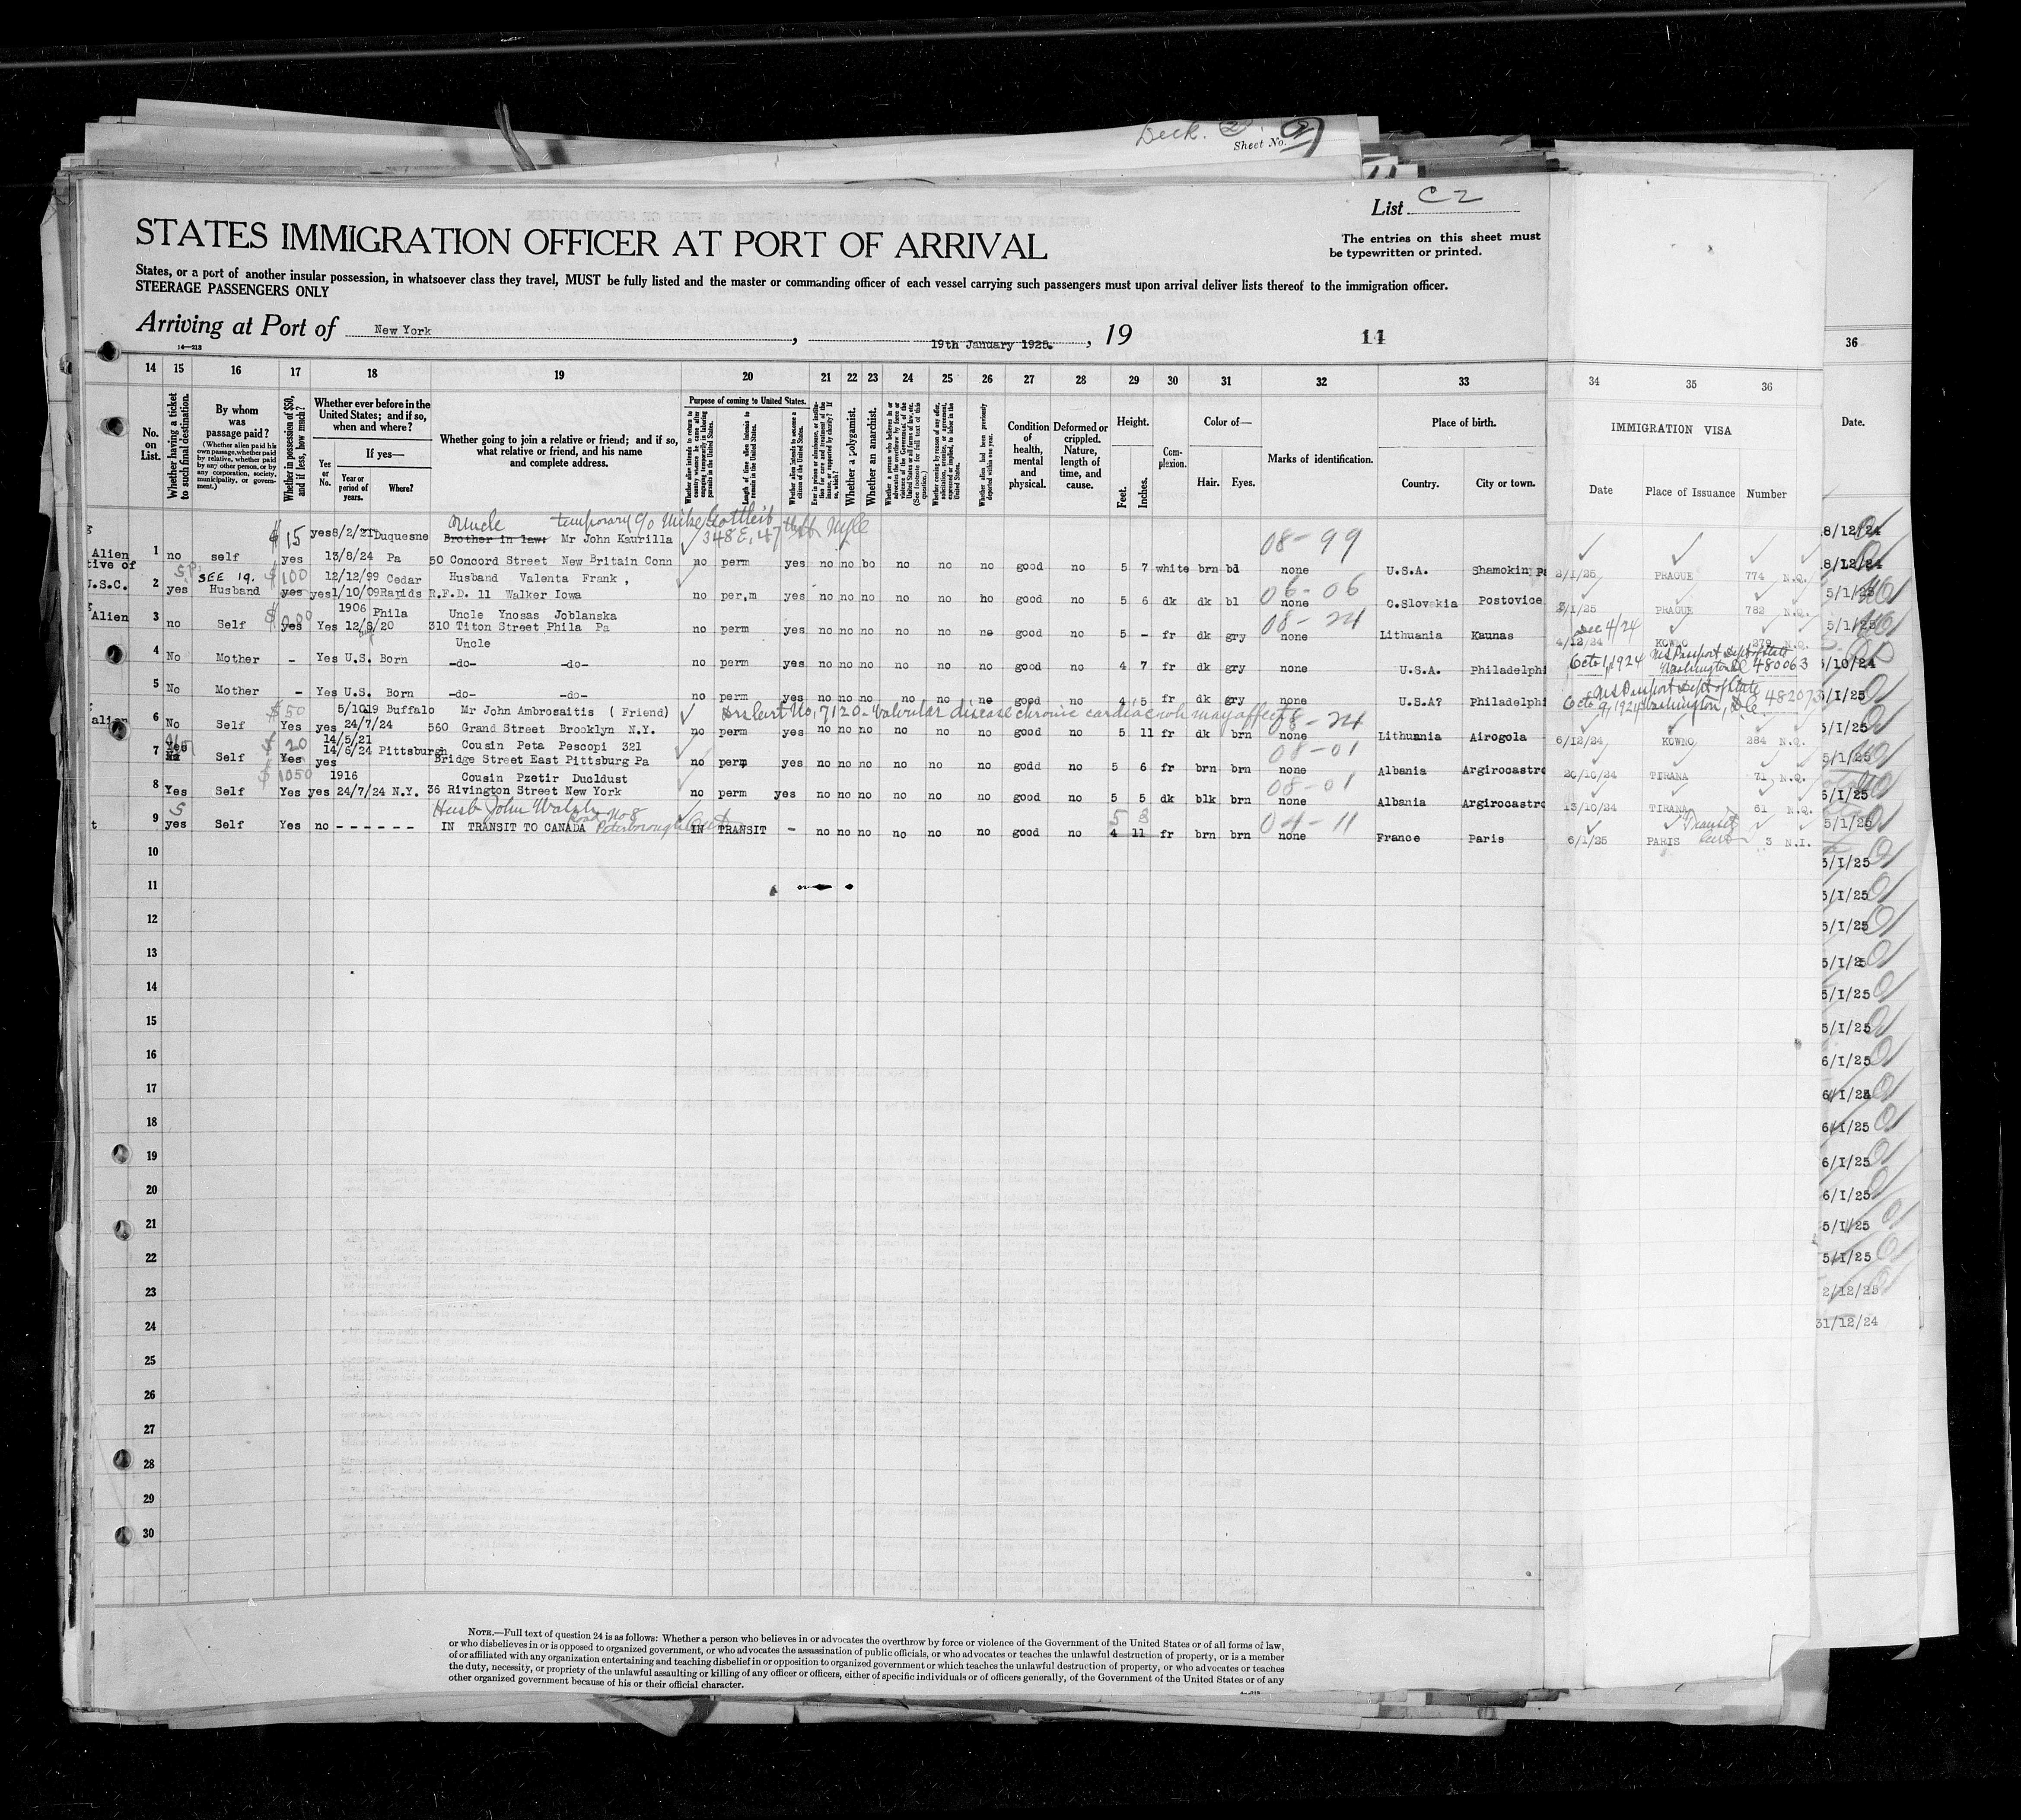 Deck. 2
Sheet No. 9
List C2
STATES IMMIGRATION OFFICER AT PORT OF ARRIVAL
The entries on this sheet must
be typewritten or printed.
States, or a port of another insular possession, in whatsoever class they travel, MUST be fully listed and the master or commanding officer of each vessel carrying such passengers must upon arrival deliver lists thereof to the immigration officer.
STEERAGE PASSENGERS ONLY
Arriving at Port of New York, 19th January 1925., 19
11
14—213
14 15 16 17 18 19 20 21 22 23 24 25 26 27 28 29 30 31 32 33 34 35 36 36
No. on List.
Whether having a ticket to such final destination.
By whom was passage paid?
(Whether alien paid his own passage, whether paid by relative, whether paid by any other person, or by any corporation, society, municipality, or government.)
Whether in possession of $50, and if less, how much?
Whether ever before in the United States; and if so, when and where?
Yes or No.
If yes—
Year or period of years.
Where?
Whether going to join a relative or friend; and if so, what relative or friend, and his name and complete address.
Purpose of coming to United States.
Whether alien intends to return to country whence he came after engaging temporarily in laboring pursuits in the United States.
Length of time alien intends to remain in the United States.
Whether alien intends to become a citizen of the United States.
Ever in prison or almshouse, or institution for care and treatment of the insane, or supported by charity? If so, which?
Whether a polygamist.
Whether an anarchist.
Whether a person who believes in or advocates the overthrow by force or violence of the Government of the United States or all forms of law, etc. (See footnote for full text of this question.)
Whether coming by reason of any offer, solicitation, promise, or agreement, expressed or implied, to labor in the United States.
Whether alien had been previously deported within one year.
Condition of health, mental and physical.
Deformed or crippled. Nature, length of time, and cause.
Height.
Feet. Inches.
Complexion.
Color of—
Hair. Eyes.
Marks of identification.
Place of birth.
Country. City or town.
IMMIGRATION VISA
Date Place of Issuance Number
Date.
Uncle temporary c/o Mike Gottleib
$15 yes 8/2/21 Duquesne Brother in law: Mr John Kaurilla 348 E. 47th St NYC 08-99
Alien 1 no self yes 13/8/24 Pa 50 Concord Street New Britain Conn no perm yes no no bo no no no good no 5 7 white brn bd none U.S.A. Shamokin Pa 2/1/25 PRAGUE 774 N.Q.
tive of SEE 19. $100 12/12/99 Cedar Husband Valenta Frank, 06-06
U.S.C. 2 yes Husband yes yes 1/10/09 Rapids R.F.D. 11 Walker Iowa no per,m yes no no no no no ho good no 5 6 dk dk bl none C.Slovakia Postovice 2/1/25 PRAGUE 782 N.Q.
1906 Phila Uncle Ynosas Joblanska 08-24
Alien 3 no Self yes Yes 12/8/20 310 Titon Street Phila Pa no perm yes no no no no no no good no 5 - fr dk gry none Lithuania Kaunas Dec 4/24 4/12/24 KOWNO 279 N.Q.
Uncle
4 No Mother - Yes U.S. Born -do- -do- no perm yes no no no no no no good no 4 7 fr dk gry none U.S.A. Philadelphi Octo 1, 1924 US Passport Dept of State Washington DC 480063
5 No Mother - Yes U.S. Born -do- -do- no perm yes no no no no no no good no 4 5 fr dk gry none U.S.A? Philadelphi Octo 9, 1924 US Passport Dept of State Washington, DC 482073
$50 5/10 19 Buffalo Mr John Ambrosaitis ( Friend) Cert No, 7120 - Valvular disease chronic cardiac wh may affect 08-24
alien 6 No Self Yes yes 24/7/24 560 Grand Street Brooklyn N.Y. no perm yes no no no no no no good no 5 11 fr dk brn none Lithuania Airogola 6/12/24 KOWNO 284 N.Q.
$20 14/5/21 Cousin Peta Pescopi 321 08-01
7 Self Yes yes 14/6/24 Pittsburgh Bridge Street East Pittsburg Pa no perm yes no no no no no no godd no 5 6 fr brn brn none Albania Argirocastro 20/10/24 TIRANA 71 N.Q.
$1050 1916 Cousin Pzetir Ducldust 08-01
8 Yes Self Yes yes 24/7/24 N.Y. 36 Rivington Street New York no perm yes no no no no no no good no 5 5 dk blk brn none Albania Argirocastro 13/10/24 TIRANA 61 N.Q.
S Husb John Walsh 5 3 04-11 Transit
t 9 yes Self Yes no - - - - - - IN TRANSIT TO CANADA Peterborough Ont IN TRANSIT - no no no no no no good no 4 11 fr brn brn none France Paris 6/1/25 PARIS 3 N.I.
10
11
12
13
14
15
16
17
18
19
20
21
22
23
24
25
26
27
28
29
30
8/12/24
8/12/24
5/1/25
5/1/25
5/10/24
5/1/25
5/1/25
5/1/25
5/1/25
5/1/25
5/I/25
5/I/25
5/I/25
5/I/25
5/I/25
5/I/25
6/I/25
6/I/25
6/I/25
6/I/25
6/I/25
5/I/25
5/I/25
2/12/25
31/12/24
NOTE.—Full text of question 24 is as follows: Whether a person who believes in or advocates the overthrow by force or violence of the Government of the United States or of all forms of law,
or who disbelieves in or is opposed to organized government, or who advocates the assassination of public officials, or who advocates or teaches the unlawful destruction of property, or is a member
of or affiliated with any organization entertaining and teaching disbelief in or opposition to organized government or which teaches the unlawful destruction of property, or who advocates or teaches
the duty, necessity, or propriety of the unlawful assaulting or killing of any officer or officers, either of specific individuals or of officers generally, of the Government of the United States or of any
other organized government because of his or their official character.